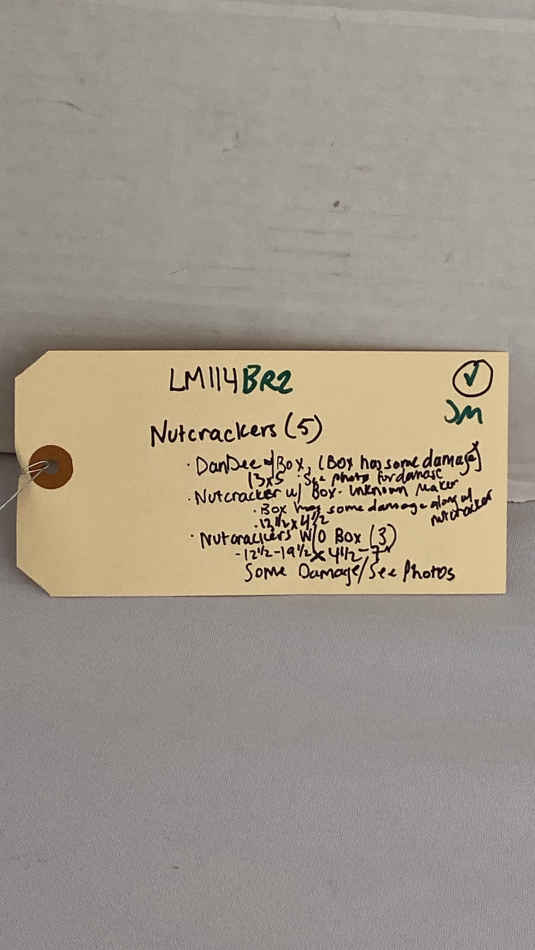 LM114BR2
✓
JM
Nutcrackers (5)
· DanDee w/Box, (Box has some damage)
13x5 · See photo for damage
· Nutcracker w/ Box - Unknown Maker
· Box has some damage along w/ nutcracker
· 13 1/2 x 4 1/2
· Nutcrackers W/O Box (3)
- 12 1/2 - 19 1/2 x 4 1/2 - 7
Some Damage/See Photos